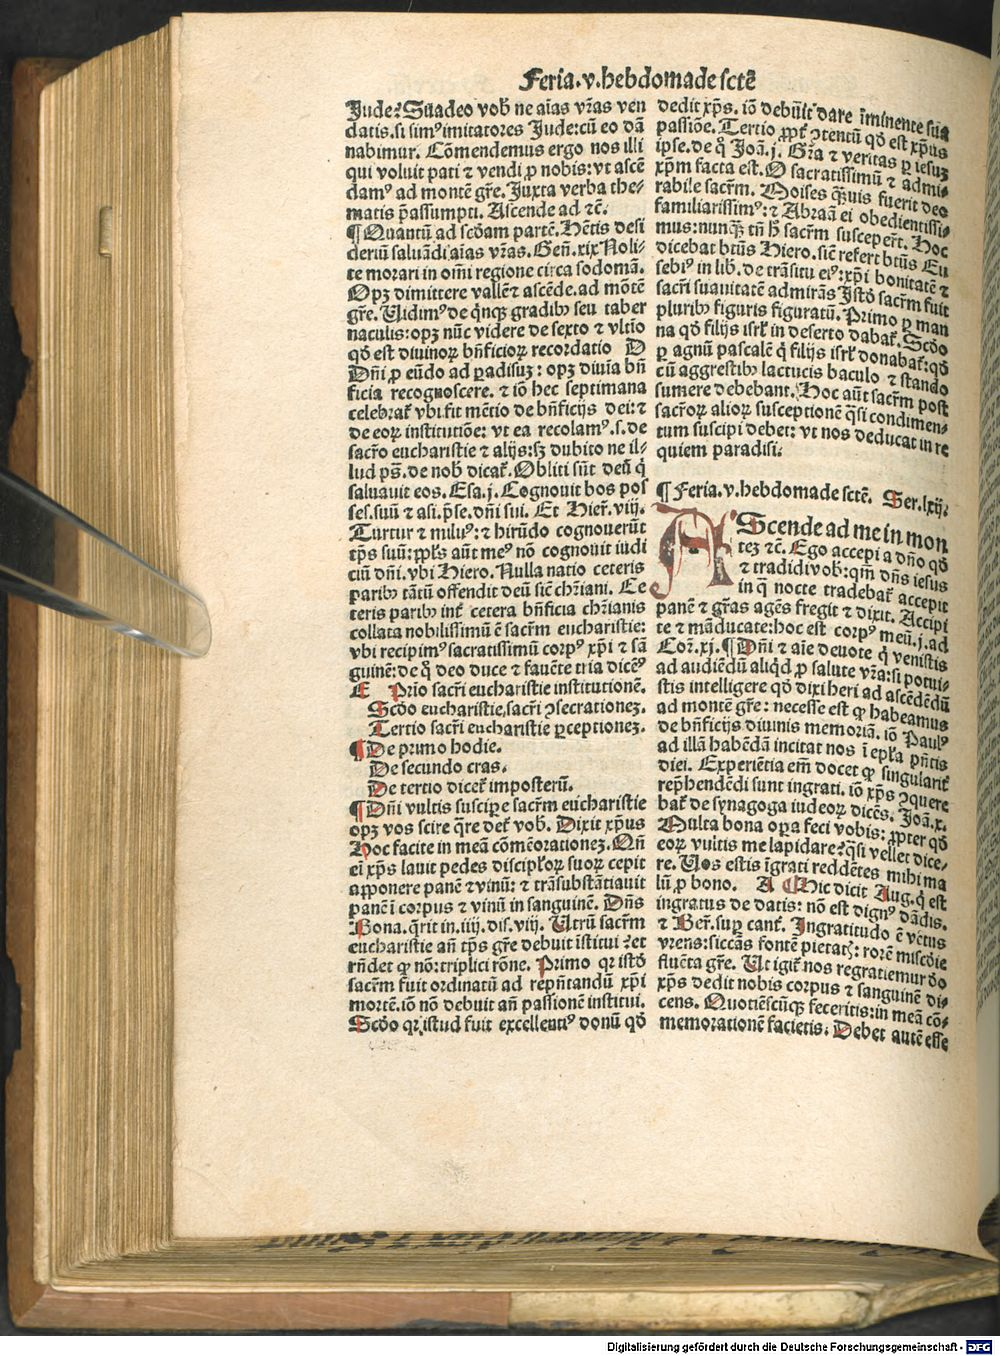 Feria.v.hebdomade sctē
Jude? Suadeo vob̄ ne aīas vr̄as ven
datis. si simꝰ imitatores Jude: cū eo dā
nabimur. Cōmendemus ergo nos illi
qui voluit pati ⁊ vendi ꝓ nobis: vt ascē
damꝰ ad montē gr̄e. Juxta verba the⸗
matis p̄assumpti. Ascende ad ⁊c̄.
¶ Quantū ad scd̄am partē. Hētis desi
deriū saluādi aīas vr̄as. Geñ. xix Noli⸗
te morari in om̄i regione circa sodomā.
Opꝫ dimittere vallē ⁊ ascēde. ad mōtē
gr̄e. Uidimꝰ de q̇nqꝫ gradibꝰ seu taber
naculis: opꝫ nūc videre de sexto ⁊ vltīo
qd̄ est diuinoꝝ bn̄ficioꝝ recordatio D
Dn̄i ꝓ eūdo ad ꝑadisuꝫ: opꝫ diuīa bn̄
ficia recognoscere. ⁊ iō hec septimana
celebrat̄ vbi fit mētio de bn̄ficijs dei: ⁊
de eoꝝ institutiōe: vt ea recolamꝰ. s. de
sacr̄o eucharistie ⁊ alijs: sꝫ dubito ne il⸗
lud pš. de nob̄ dicat̄. Obliti sūt deū q̇
saluauit eos. Esa. j. Cognouit bos pos
ses. suū ⁊ asi. p̄se. dn̄i sui. Et Hier̄. viij.
Turtur ⁊ miluꝰ: ⁊ hirūdo cognouerūt
tp̄s suū: ppl̄s aūt meꝰ nō cognouit iudi
ciū dn̄i. vbi Hiero. Nulla natio ceteris
paribꝰ tātū offendit deū sic̄ chr̄iani. Ce
teris paribꝰ int̄ cetera bn̄ficia chr̄ianis
collata nobilissimū ē sacr̄m eucharistie:
vbi recipimꝰ sacratissimū corpꝰ xp̄i ⁊ sā
guinē: de q̊ deo duce ⁊ fauēte tria dicēꝰ
E Prio sacr̄i eucharistie institutionē.
Scd̄o eucharistie, sacr̄i ꝯsecrationeꝫ.
Tertio sacr̄i eucharistie ꝑceptioneꝫ.
¶ De primo hodie.
De secundo cras.
De tertio dicet̄ imposterū.
¶ Dn̄i vultis suscipe sacr̄m eucharistie
opꝫ vos scire q̄re det̄ vob̄. Dixit xp̄us
Hoc facite in meā cōmēorationeꝫ. Qn̄
ei xp̄s lauit pedes discipl̄oꝝ suoꝝ cepit
apponere panē ⁊ vinū: ⁊ trāsubstātiauit
panē ī corpus ⁊ vinū in sanguinē. Dn̄s
Bona. q̄rit in. iiij. dis. viij. Utrū sacr̄m
eucharistie añ tp̄s gr̄e debuit īstitui? et
rn̄det ꝙ nō: triplici rōne. Primo qꝛ istd̄
sacr̄m fuit ordinatū ad repn̄tandū xp̄i
mortē. iō nō debuit añ passionē institui.
Scd̄o qꝛ istud fuit excellentiꝰ donū qd̄
dedit xp̄s. iō debuit dare īminente sua
passiōe. Tertio ꝓpt̄ ꝯtentū qd̄ est xp̄us
ipse. de q̊ Joā. j. Gr̄a ⁊ veritas ꝑ iesuꝫ
xp̄m facta est. O sacratissimū ⁊ admi⸗
rabile sacr̄m. Moises q̄suis fuerit deo
familiarissimꝰ: ⁊ Abraā ei obedientissi⸗
mus: nunqꝫ tn̄ h̄ sacr̄m suscepert̄. Hoc
dicebat bt̄us Hiero. sic̄ refert bt̄us Eu
sebiꝰ in lib̄. de trāsitu eiꝰ: xp̄i bonitatē ⁊
sacr̄i suauitatē admirās Istd̄ sacr̄m fuit
pluribꝰ figuris figuratū. Primo ꝑ man
na qd̄ filijs isrl̄ in deserto dabat̄. Scd̄o
ꝑ agnū pascalē q̇ filijs isrl̄ donabat̄: qd̄
cū aggrestibꝰ lactucis baculo ⁊ stando
sumere debebant. Hoc aūt sacr̄m post
sacr̄oꝝ alioꝝ susceptionē q̄si condimen⸗
tum suscipi debet: vt nos deducat in re
quiem paradisi.
¶ Feria.v.hebdomade sctē. Ser.lxij.
AScende ad me in mon
teꝫ ⁊c̄. Ego accepi a dn̄o qd̄
⁊ tradidi vob̄: qm̄ dn̄s iesus
in q̄ nocte tradebat̄ accepit
panē ⁊ gr̄as agēs fregit ⁊ dixit. Accipi
te ⁊ māducate: hoc est corpꝰ meū. j. ad
Cor̄. xj. ¶ Dn̄i ⁊ aīe deuote q̇ venistis
ad audiēdū aliqd̄ ꝓ salute vr̄a: si potui⸗
stis intelligere qd̄ dixi heri ad ascēdēdū
ad montē gr̄e: necesse est ꝙ habeamus
de bn̄ficijs diuinis memoriā. iō Paulꝰ
ad illā habēdā incitat nos ī epl̄a pn̄tis
diei. Experiētia em̄ docet ꝙ singularit̄
rep̄hendēdi sunt ingrati. iō xp̄s ꝯquere
bat̄ de synagoga iudeoꝝ dicēs. Joā. x.
Multa bona oꝑa feci vobis: ꝓpter qd̄
eoꝝ vultis me lapidare? q̄si vellet dice⸗
re. Uos estis īgrati reddētes mihi ma
lū ꝓ bono. A ¶ Hic dicit Aug. q̇ est
ingratus de datis: nō est dignꝰ dādis.
⁊ Ber̄. suꝑ cant̄. Ingratitudo ē vētus
vrens: siccās fontē pietat̄: rorē misc̄die
fluēta gr̄e. Ut igit̄ nos regratiemur dō
xp̄s dedit nobis corpus ⁊ sanguinē di⸗
cens. Quotiēscūqꝫ feceritis: in meā cō⸗
memorationē facietis. Debet autē esse
Digitalisierung gefördert durch die Deutsche Forschungsgemeinschaft - DFG